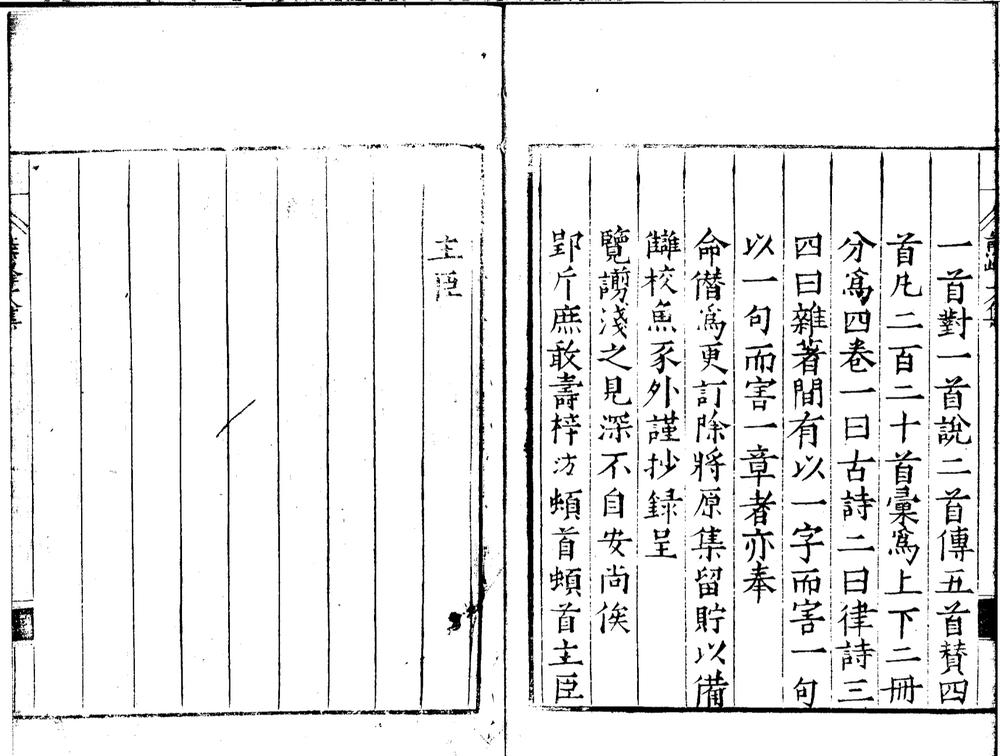 一首對一首說二首傳五首賛四
首凡二百二十首彚爲上下二冊
分爲四卷一曰古詩二曰律詩三
四曰雜著間有以一字而害一句
以一句而害一章者亦奉
命僭爲更訂除將原集留貯以備
讎校魚豕外謹抄録呈
覽謭淺之見深不自安尚俟
郢斤庶敢壽梓汸頓首頓首主臣
主臣